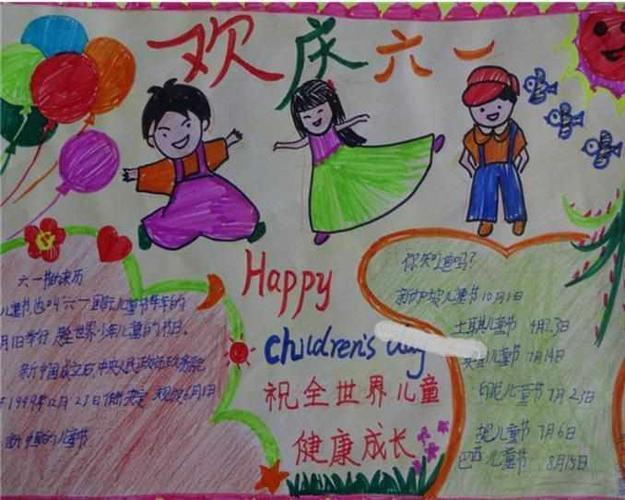 欢庆六一
六一的来历
儿童节也叫六一国际儿童节每年的
月1日举行
新中国成立后中央人民政府政务院
12月23日做决定 规定6月1
新中国的儿童节
Happy
children's day
祝全世界儿童
健康成长
你知道吗?
新加坡儿童节10月1日
儿童节 4月23日
儿童节 7月14日
印尼儿童节 7月23日
儿童节 7月6日
巴西儿童节 8月15日